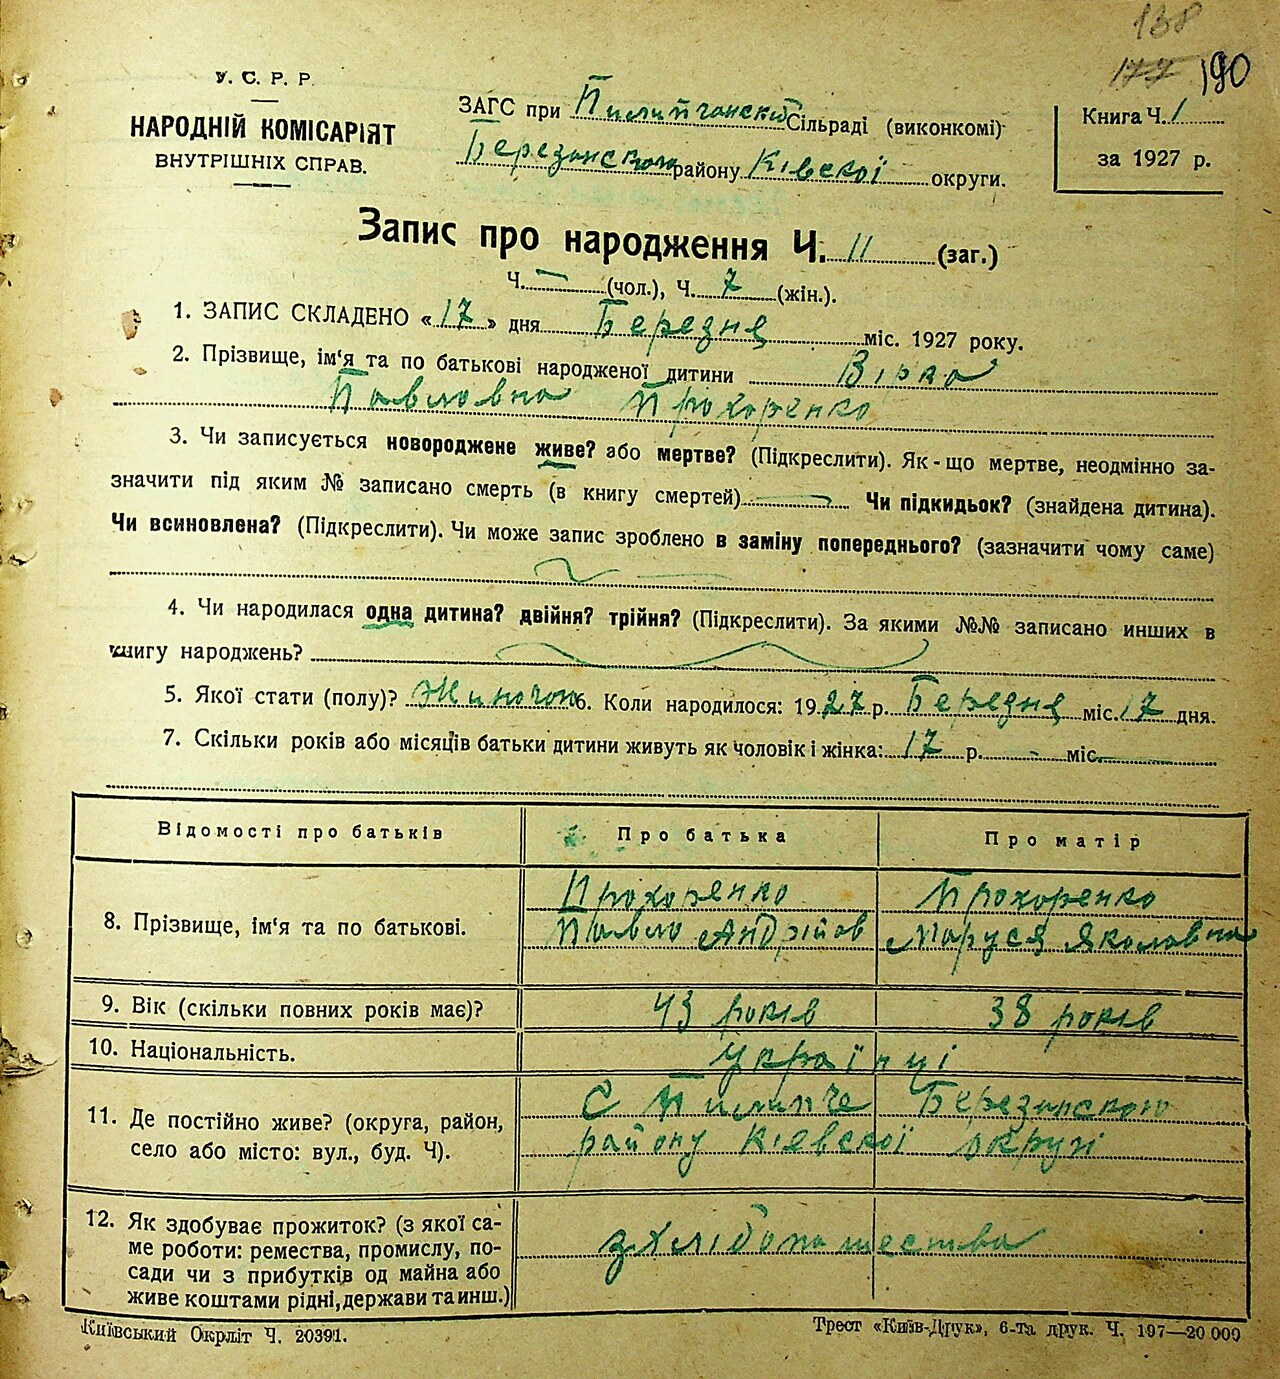 138
177 190
У. С. Р. Р.
НАРОДНІЙ КОМІСАРІЯТ
ВНУТРІШНІХ СПРАВ.
ЗАГС при Пилипчанскій Сільраді (виконкомі)
Березанского району Київскої округи.
Книга Ч. 1
за 1927 р.
Запис про народження Ч. 11 (заг.)
Ч. — (чол.), Ч. 7 (жін.).
1. ЗАПИС СКЛАДЕНО «17» дня Березня міс. 1927 року.
2. Прізвище, ім'я та по батькові народженої дитини Вірка
Павловна Прохоренко
3. Чи записується новороджене живе? або мертве? (Підкреслити). Як-що мертве, неодмінно за-
значити під яким № записано смерть (в книгу смертей) — Чи підкидьок? (знайдена дитина).
Чи всиновлена? (Підкреслити). Чи може запис зроблено в заміну попереднього? (зазначити чому саме)
4. Чи народилася одна дитина? двійня? трійня? (Підкреслити). За якими №№ записано инших в
книгу народжень?
5. Якої стати (полу)? Жиночои 6. Коли народилося: 1927 р. Березня міс. 17 дня.
7. Скільки років або місяців батьки дитини живуть як чоловік і жінка: 17 р. - міс.
Відомості про батьків Про батька Про матір
8. Прізвище, ім'я та по батькові. Прохоренко Павло Андріїов Прохоренко Маруся Яковловна
9. Вік (скільки повних років має)? 43 років 38 років
10. Національність. Українці
11. Де постійно живе? (округа, район, С Пилипче Березанского
село або місто: вул., буд. Ч). району Київскої округі
12. Як здобуває прожиток? (з якої са-
ме роботи: ремества, промислу, по- з Хлібопашества
сади чи з прибутків од майна або
живе коштами рідні, держави та инш.)
Київський Окрліт Ч. 20391.
Трест «Київ-Друк», 6-та друк. Ч. 197—20 000